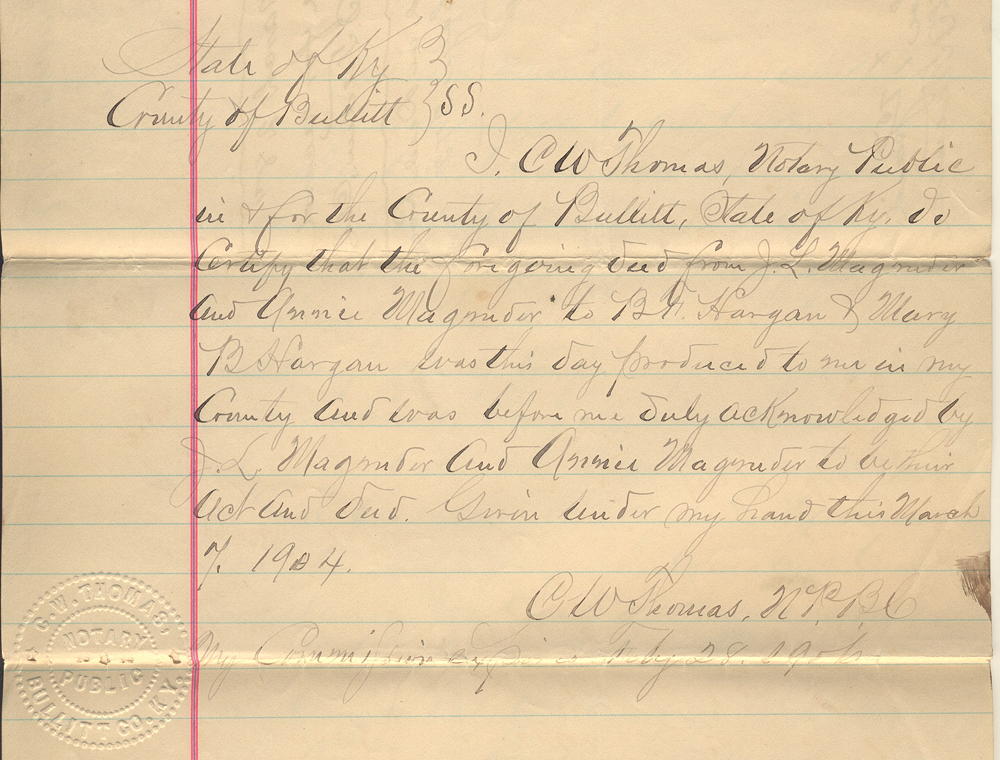 State of Ky }
County of Bullitt } SS.
I, C W Thomas, Notary Public
in & for the County of Bullitt, State of Ky. do
Certify that the foregoing deed from J. L. Magruder
and Annie Magruder to B.F. Hargan & Mary
B Hargan was this day produced to me in my
County and was before me duly acknowledged by
J. L. Magruder and Annie Magruder to be their
act and deed. Given under my hand this March
7. 1904.
C W Thomas, N.P.B.C
My Commission expires Feby 28. 1906.
C. W. THOMAS,
NOTARY
PUBLIC
BULLITT CO. KY.